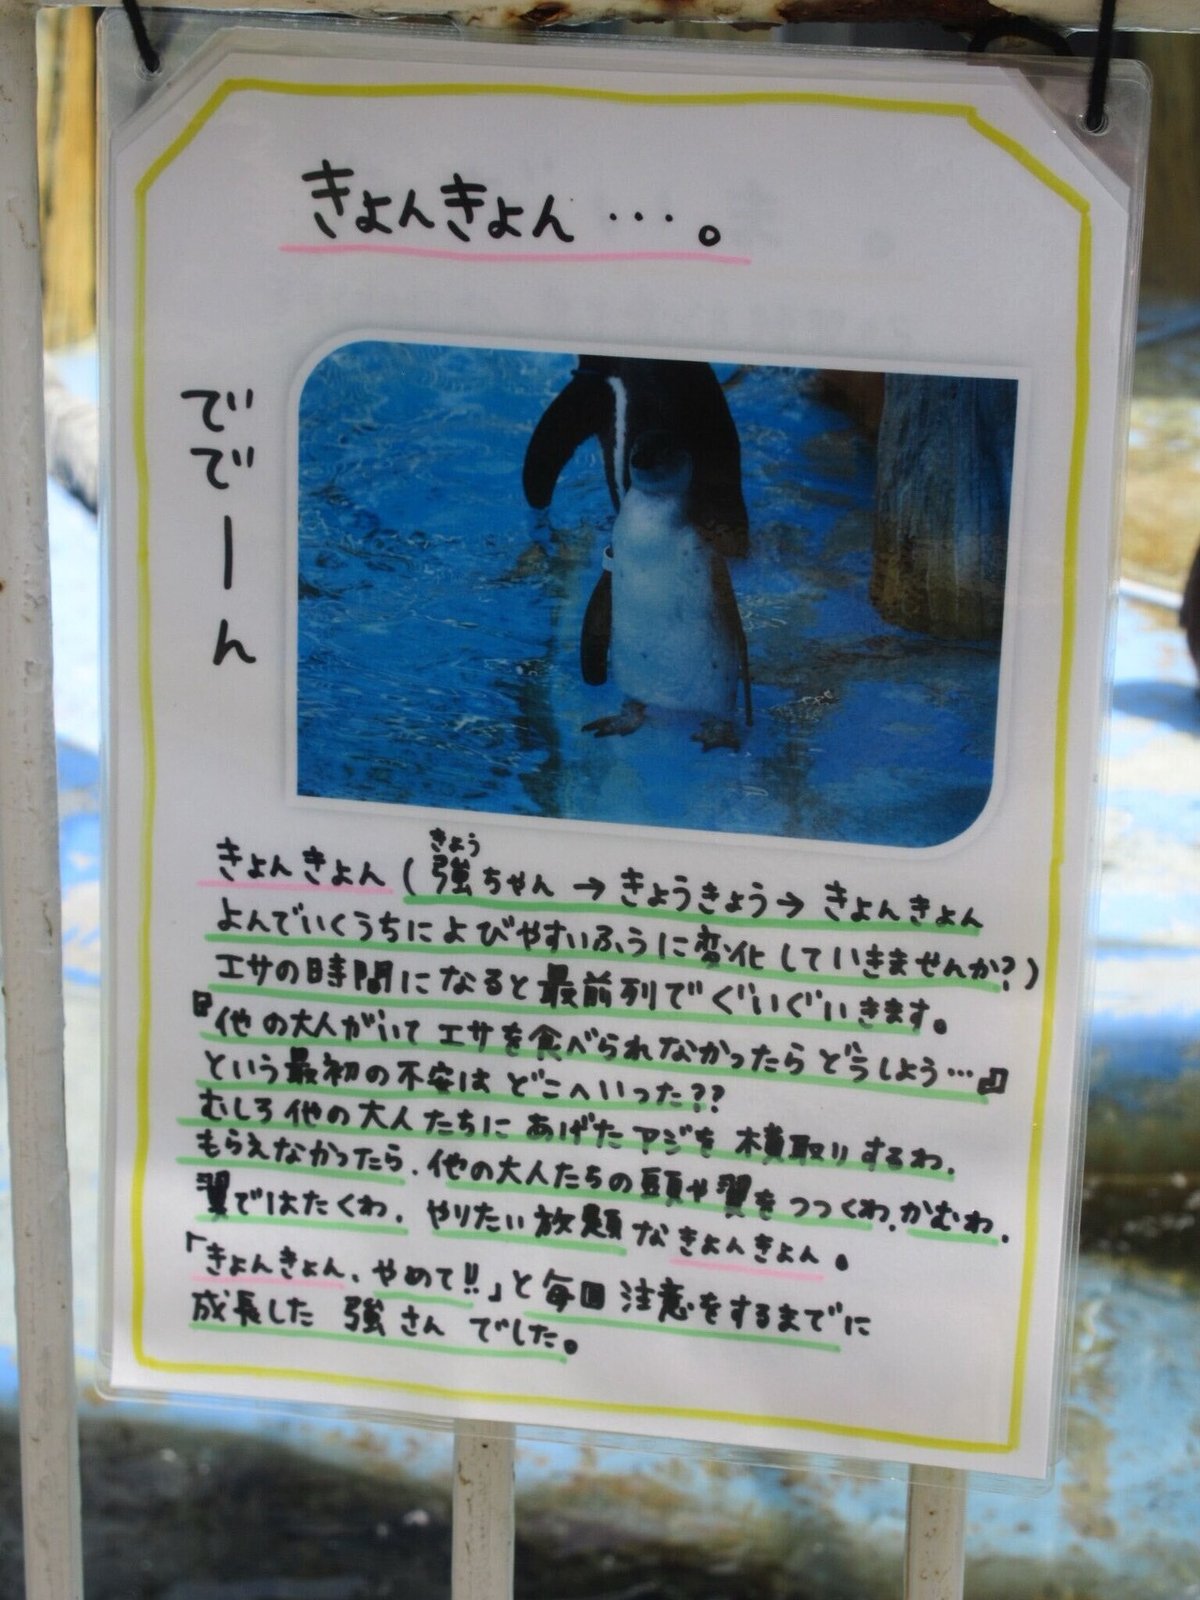 きょんきょん…。
ででーん
きょんきょん(強ちゃん→きょうきょう→きょんきょん
きょう
よんでいくうちによびやすいふうに変化していきませんか?)
エサの時間になると最前列でぐいぐいきます。
『他の大人がいてエサを食べられなかったらどうしよう…』
という最初の不安はどこへいった??
むしろ他の大人たちにあげたアジを横取りするわ、
もらえなかったら、他の大人たちの頭や翼をつつくわ、かむわ、
翼ではたくわ、やりたい放題なきょんきょん。
「きょんきょん、やめて!!」と毎回注意をするまでに
成長した強さんでした。